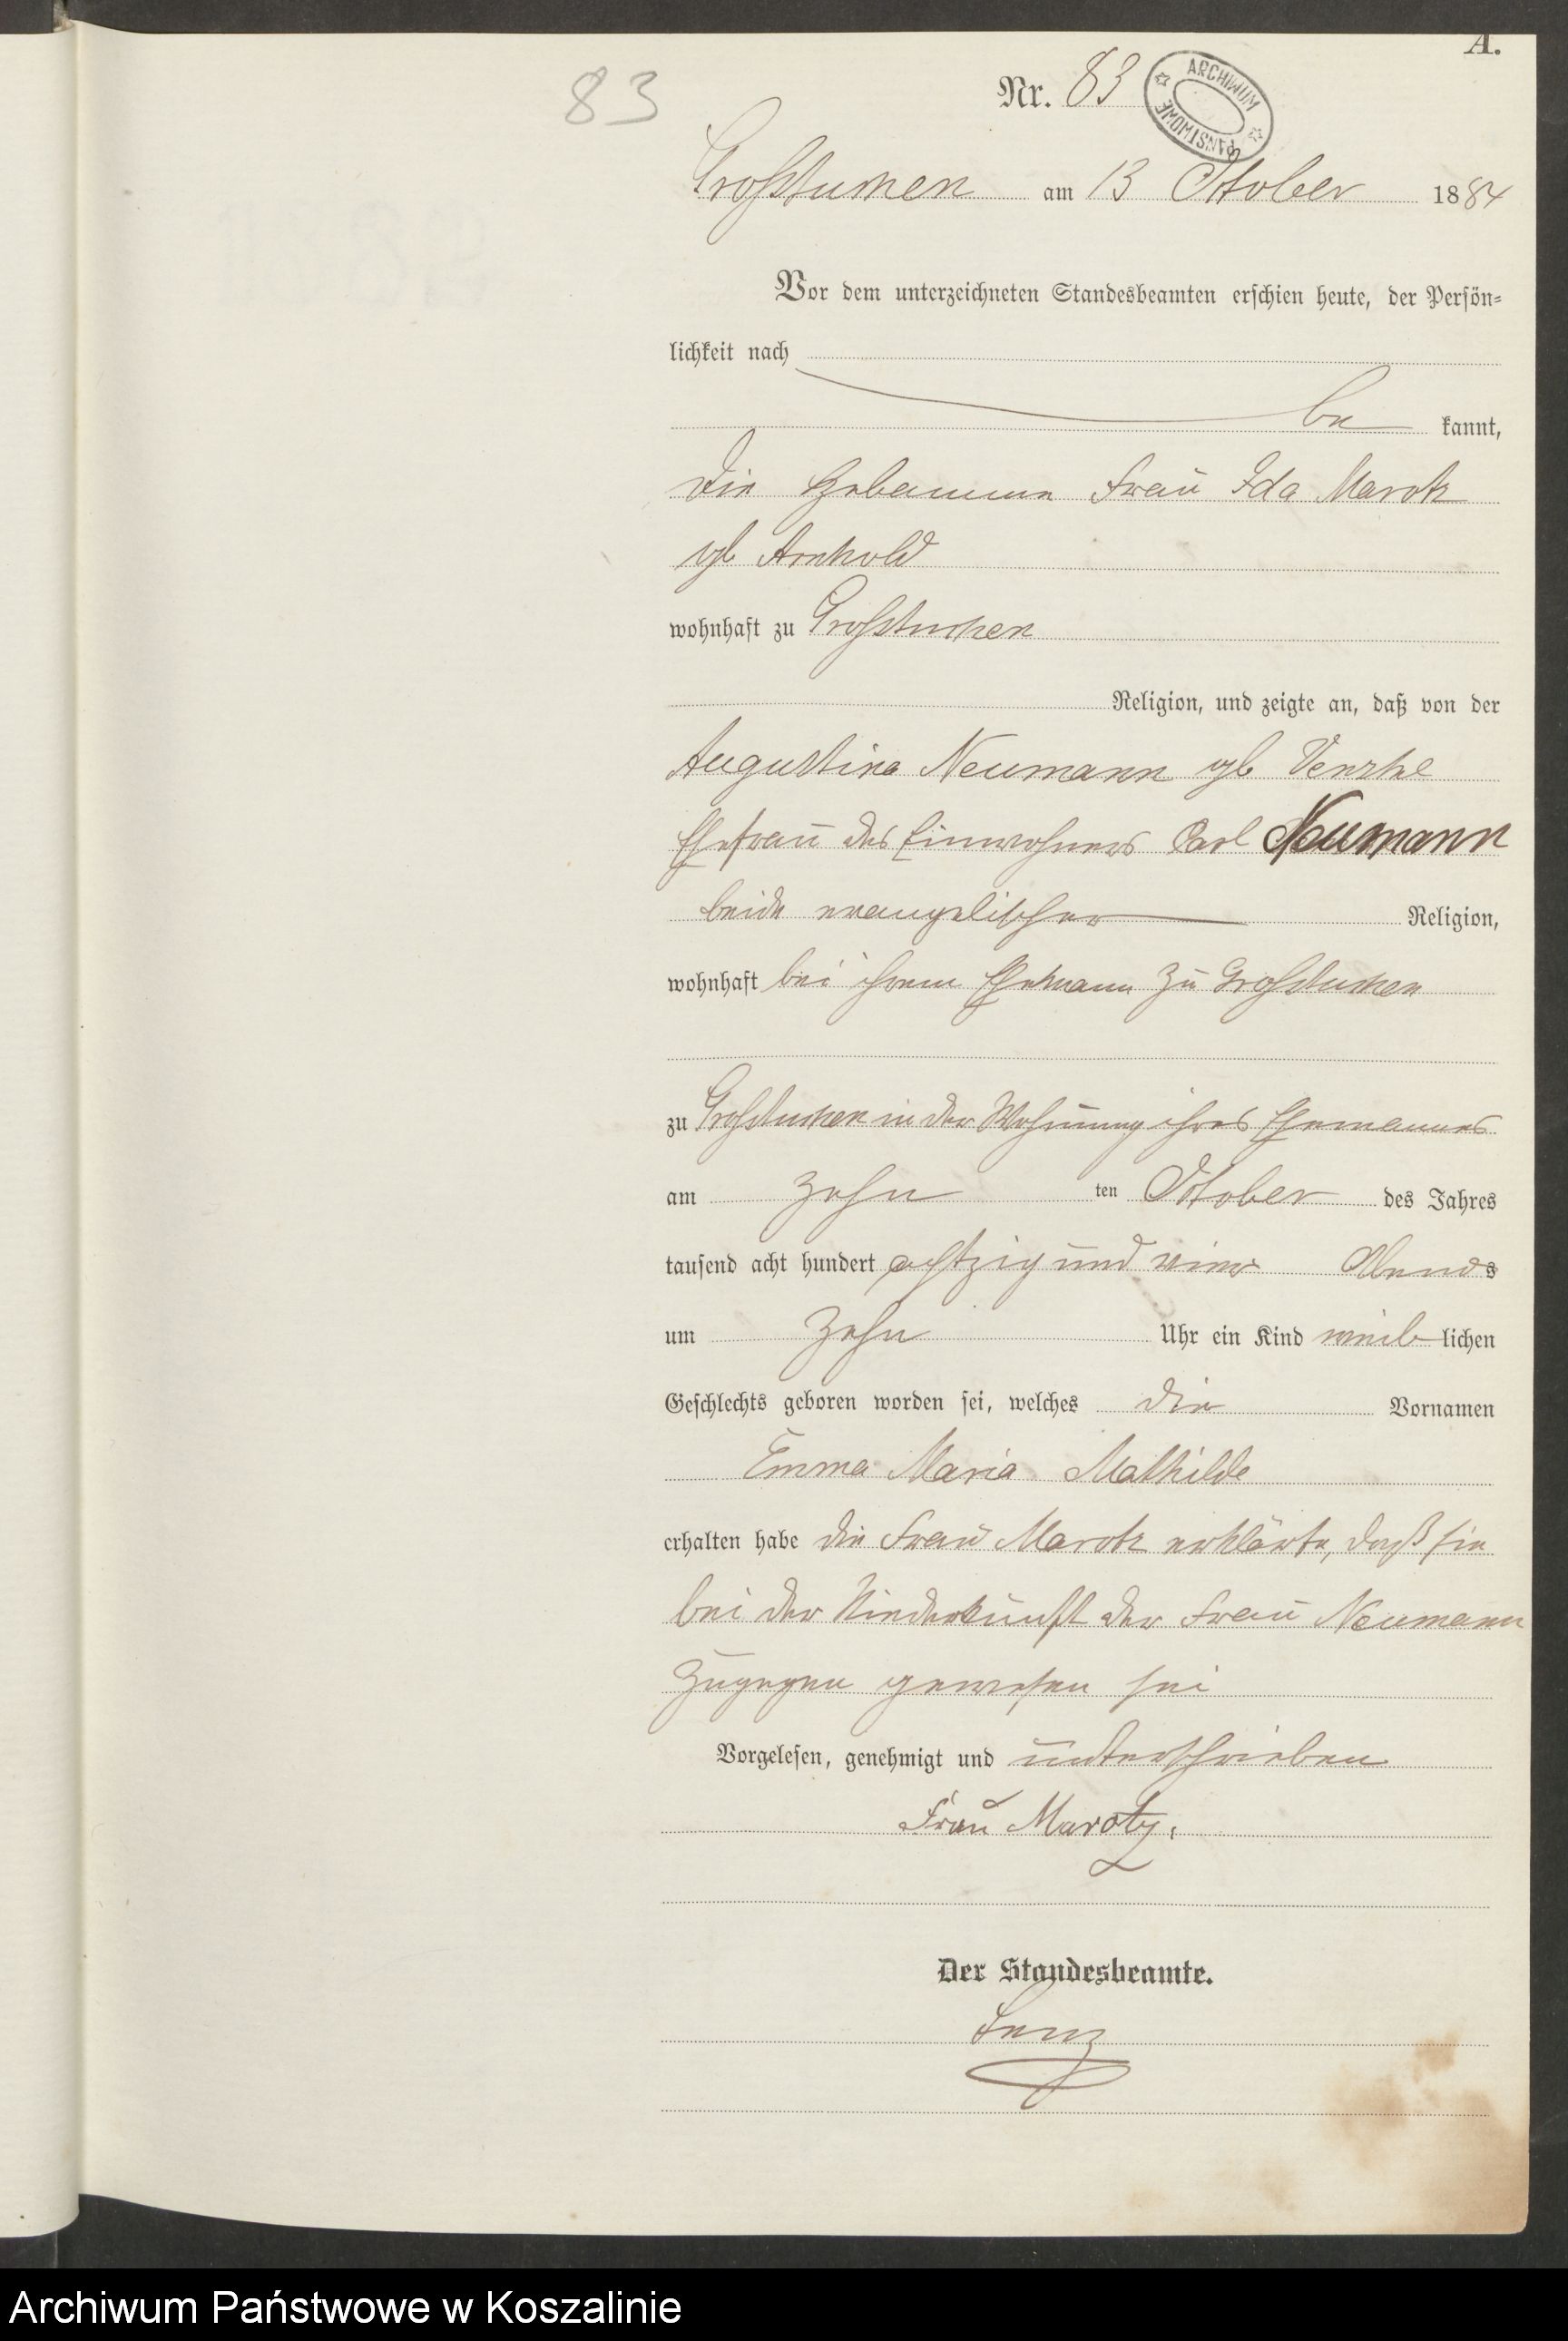 A.
83
Nr. 83
ARCHIWUM PAŃSTWOWE
Großtuchen am 13 October 1884
Vor dem unterzeichneten Standesbeamten erschien heute, der Persön-
lichkeit nach
be kannt,
die Hebamme Frau Ida Marotz
geb Arnhold
wohnhaft zu Großtuchen
Religion, und zeigte an, daß von der
Augustine Neumann geb Venzke
Ehefrau des Einwohners Carl Neumann
beide evangelischer Religion,
wohnhaft bei ihrem Ehemann zu Großtuchen
zu Großtuchen in der Wohnung ihres Ehemannes
am zehn ten October des Jahres
tausend acht hundert achtzig und vier Abends
um zehn Uhr ein Kind weib lichen
Geschlechts geboren worden sei, welches die Vornamen
Emma Maria Mathilde
erhalten habe die Frau Marotz erklärte, daß sie
bei der Niederkunft der Frau Neumann
zugegen gewesen sei
Vorgelesen, genehmigt und unterschrieben
Frau Marotz.
Der Standesbeamte.
Lenz
Archiwum Państwowe w Koszalinie